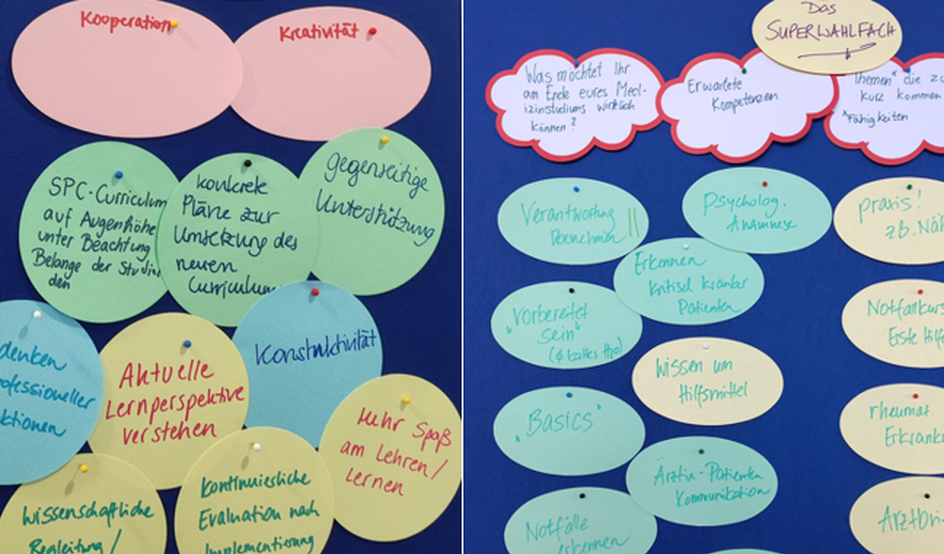 Kooperation
Kreativität
SPC-Curriculum
auf Augenhöhe
unter Beachtung
Belange der Studien
den
konkrete
Pläne zur
Umsetzung des
neuen
Curriculum
gegenseitige
Unterstützung
denken
ofessioneller
ktionen
Aktuelle
Lernperspektive
verstehen
Konstruktivität
Mehr Spaß
am Lehren/
Lernen
Wissenschaftliche
Begleitung/
Kontinuierliche
Evaluation nach
Implementierung
Das
SUPERWAHLFACH
Was möchtet Ihr
am Ende eures Med-
izinstudiums wirklich
können?
Erwartete
Kompetenzen
Themen* die zu
kurz kommen
*Fähigkeiten
Verantwortung ||
übernehmen
Psycholog.
Anamnese
praxis!
z.b. Näh
Erkennen
kritisch kranker
Patienten
"Vorbereitet
sein"
Notfallkurs
Erste Hilfe
Wissen um
Hilfsmittel
"Basics"
rheumat.
Erkranku
Ärztin-Patienten
Kommunikation
Notfälle
erkennen
Arztbri